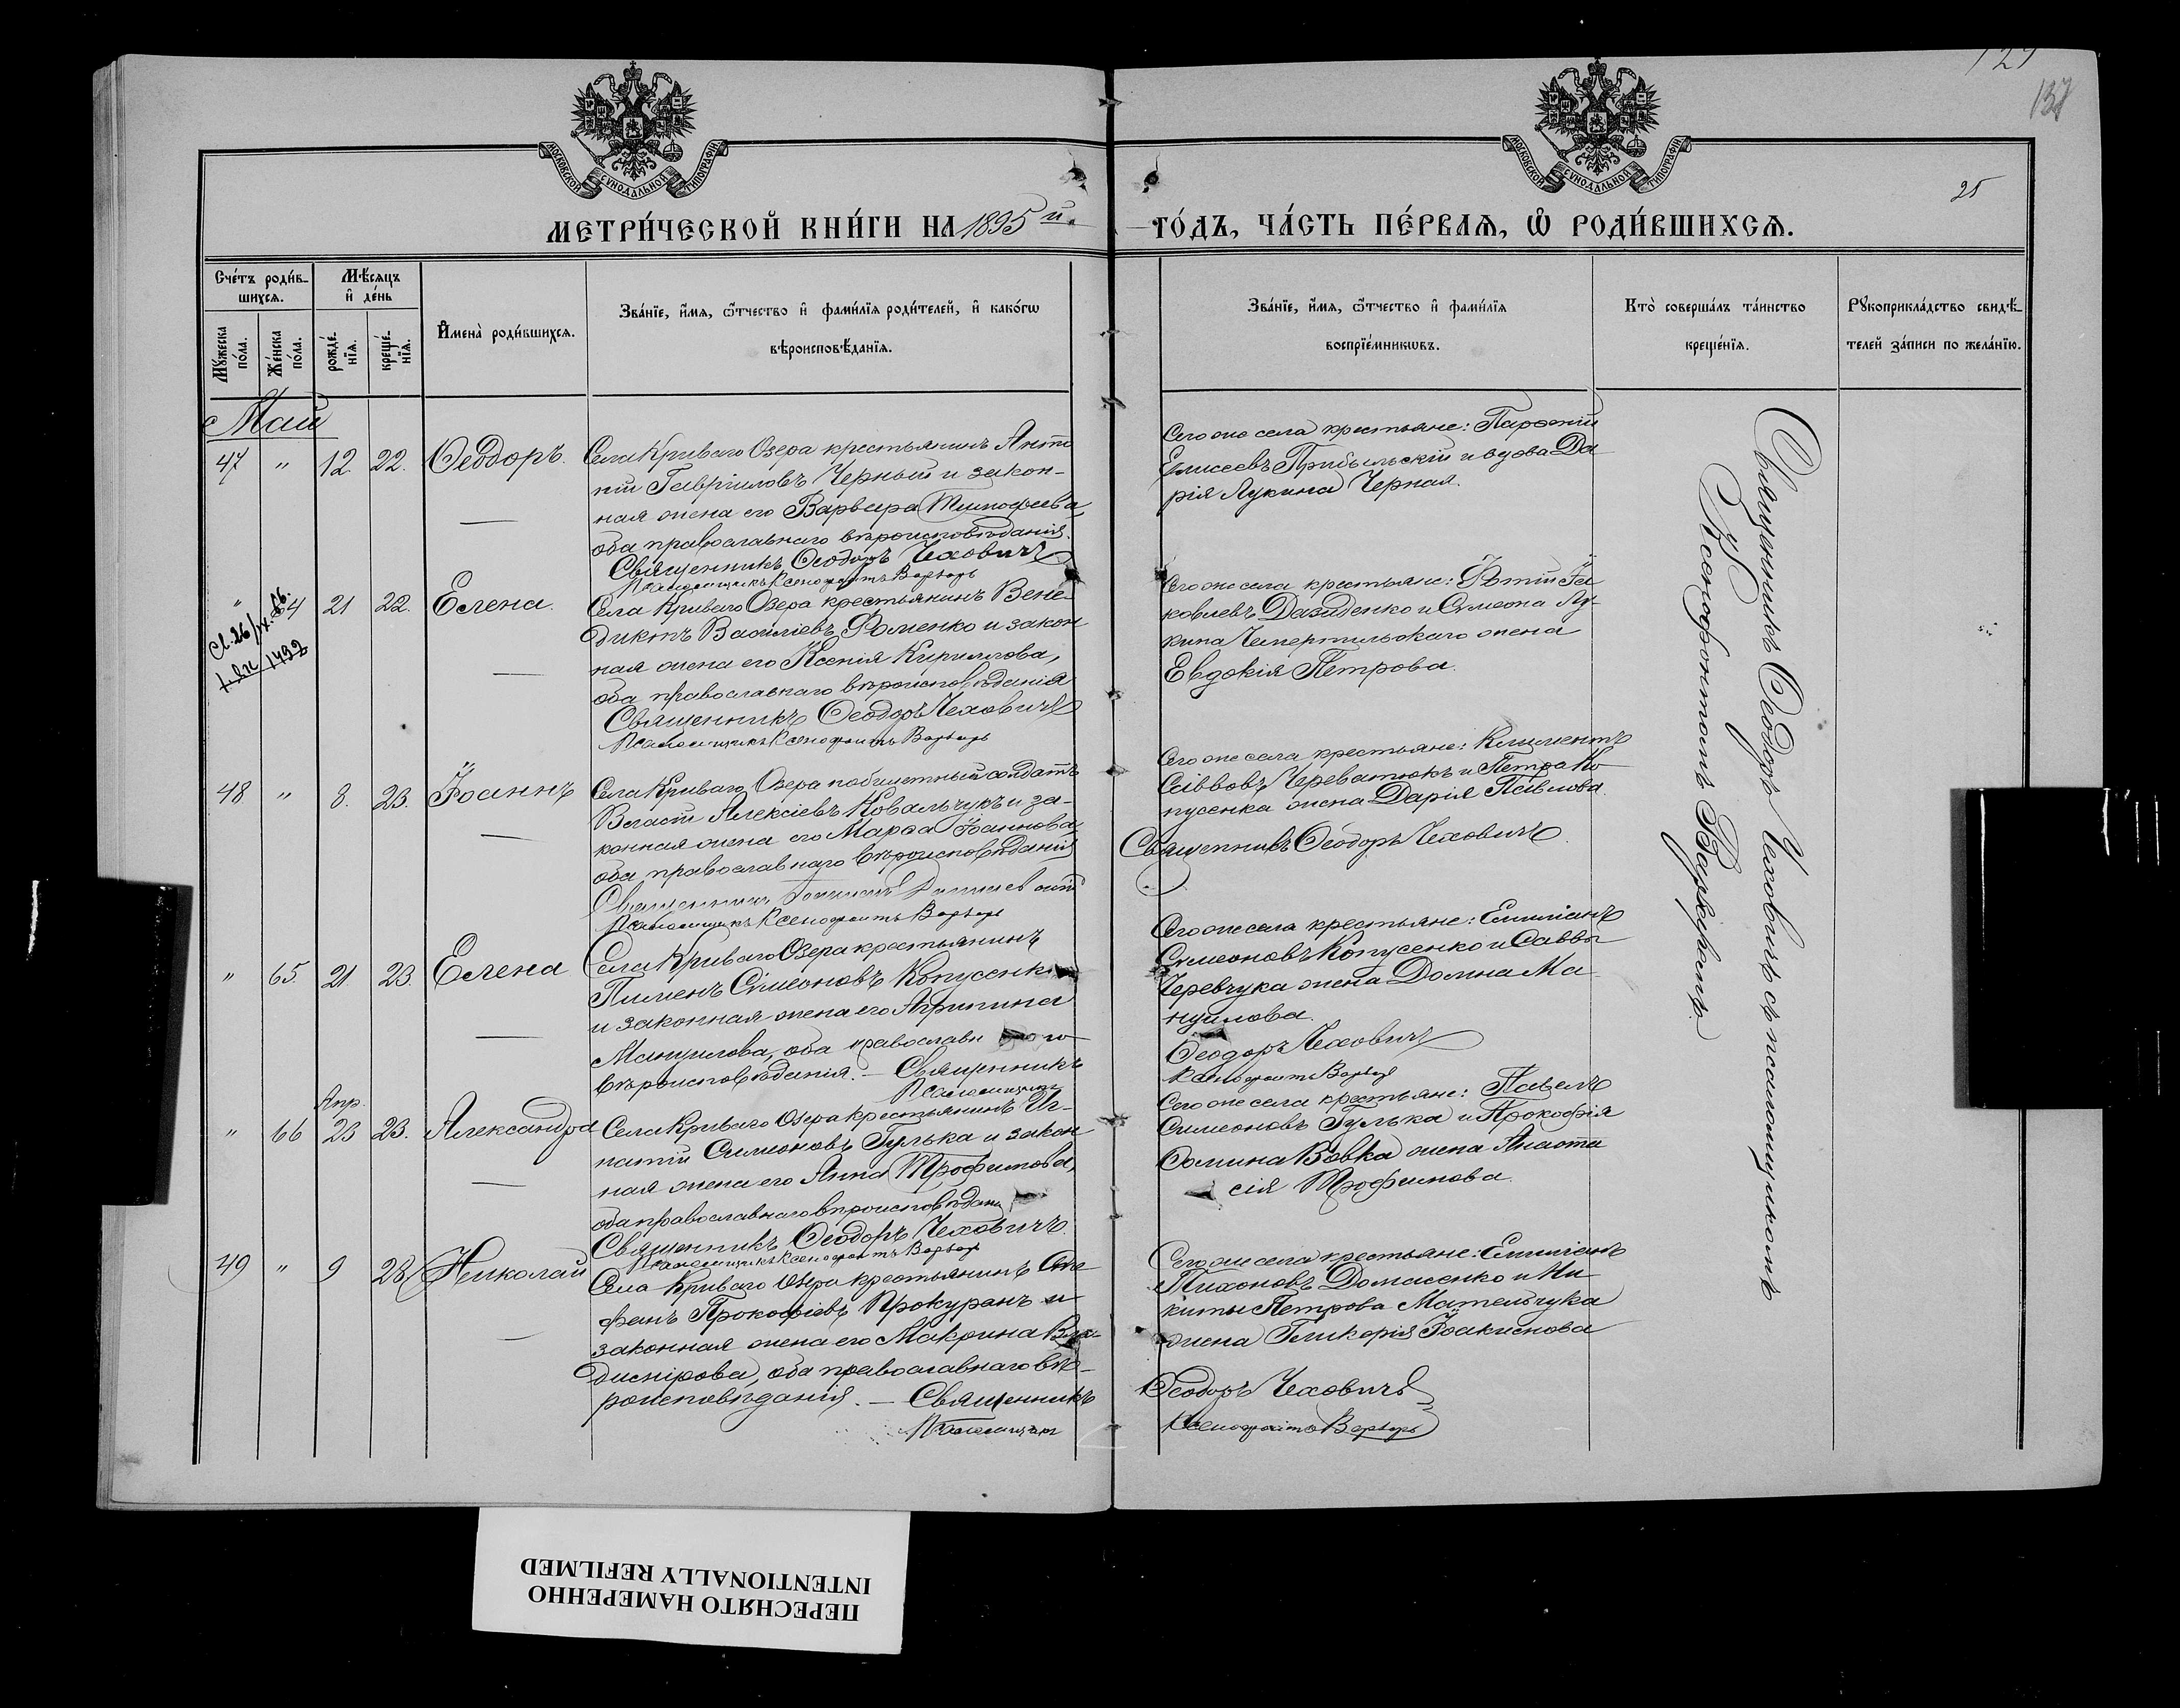 129
137
25
МОСКОВСКОЙ СѴНОДАЛЬНОЙ ТИПОГРАФІИ
МОСКОВСКОЙ СѴНОДАЛЬНОЙ ТИПОГРАФІИ
МЕТРИ́ЧЕСКОЙ КНИ́ГИ НА 1895 й.
ГО́ДЪ, ЧА́СТЬ ПЕ́РВАѦ, Ѡ҆ РОДИ́ВШИХСѦ.
Сче́тъ роди́в-
шихсѧ.
Мꙋ́жеска по́ла.
Же́нска по́ла.
Мѣ́сѧцъ
и҆ де́нь
рожде́-
нїѧ.
креще́-
нїѧ.
И҆мена̀ роди́вшихсѧ.
Зва́нїе, и҆́мѧ, ѻ҆́тчество и҆ фами́лїѧ роди́телей, и҆ како́гѡ
вѣроисповѣ́данїѧ.
Зва́нїе, и҆́мѧ, ѻ҆́тчество и҆ фами́лїѧ
воспрїе́мникѡвъ.
Кто̀ соверша́лъ та́инство
креще́нїѧ.
Рꙋкоприкла́дство свидѣ́-
телей за́писи по жела́нїю.
Май
47 " 12. 22. Ѳеодоръ.
Села Криваго Озера крестьянинъ Анти
пій Гавріиловъ Черный и закон-
ная жена его Варвара Тимофеева,
оба православнаго вѣроисповѣданія.
Священникъ Ѳеодоръ Чеховичъ
Псаломщикъ Ксенофонтъ Варварь
Сего же села крестьяне: Парѳеній
Елисеевъ Прибыльскій и вдова Да
рія Лукина Черная.
" 64 21 22. Елена.
Села Криваго Озера крестьянинъ Вене-
диктъ Василіевъ Фоменко и закон
ная жена его Ксенія Кириллова,
оба православнаго вѣроисповѣданія
Священникъ Ѳеодоръ Чеховичъ
Псаломщикъ Ксенофонтъ Варварь
Сего же села крестьяне: Фотій Іа
ковлевъ Давиденко и Симеона Лу-
кина Чепертильскаго жена
Евдокія Петрова.
48 " 8. 23. Іоаннъ
Села Криваго Озера побилетный солдатъ
Власій Алексіевъ Ковальчукъ и за-
конная жена его Марѳа Іоаннова
оба православнаго вѣроисповѣданія
Священникъ
Псаломщикъ Ксенофонтъ Варварь
Сего же села крестьяне: Климентъ
Саввовъ Череватюкъ и Петра Ко
пусенка жена Дарія Павлова.
Священникъ Ѳеодоръ Чеховичъ
" 65. 21 23. Елена
Села Криваго Озера крестьянинъ
Пименъ Симеоновъ Копусенко
и законная жена его Агрипина
Мануилова, оба православнаго
вѣроисповѣданія. – Священникъ
Псаломщикъ
Сего же села крестьяне: Емиліанъ
Симеоновъ Копусенко и Саввы
Черевчука жена Домна Ма-
нуилова.
Ѳеодоръ Чеховичъ
Ксенофонтъ Варварь
Апр.
" 66 23 23. Александра
Села Криваго Озера крестьянинъ Иг-
натій Симеоновъ Гулька и закон
ная жена его Анна Трофимова,
оба православнаго вѣроисповѣданія
Священникъ Ѳеодоръ Чеховичъ.
Псаломщикъ Ксенофонтъ Варварь
Сего же села крестьяне: Павелъ
Симеоновъ Гулька и Прокофія
Ѳомина Вовка жена Анаста
сія Трофимова.
49 " 9 28 Николай
Села Криваго Озера крестьянинъ Сте
фанъ Прокофіевъ Прокуранъ и
законная жена его Макрина Вла-
димірова, оба православнаго вѣ-
роисповѣданія. – Священникъ
Псаломщикъ
Сего же села крестьяне: Емиліанъ
Тихоновъ Домасенко и Ни-
киты Петрова Мательчука
жена Гликерія Іоакимова
Ѳеодоръ Чеховичъ
Ксенофонтъ Варварь
Священникъ Ѳеодоръ Чеховичъ съ псаломщикомъ
Ксенофонтомъ Варваремъ.
ПЕРЕСНЯТО НАМЕРЕННО
INTENTIONALLY REFILMED